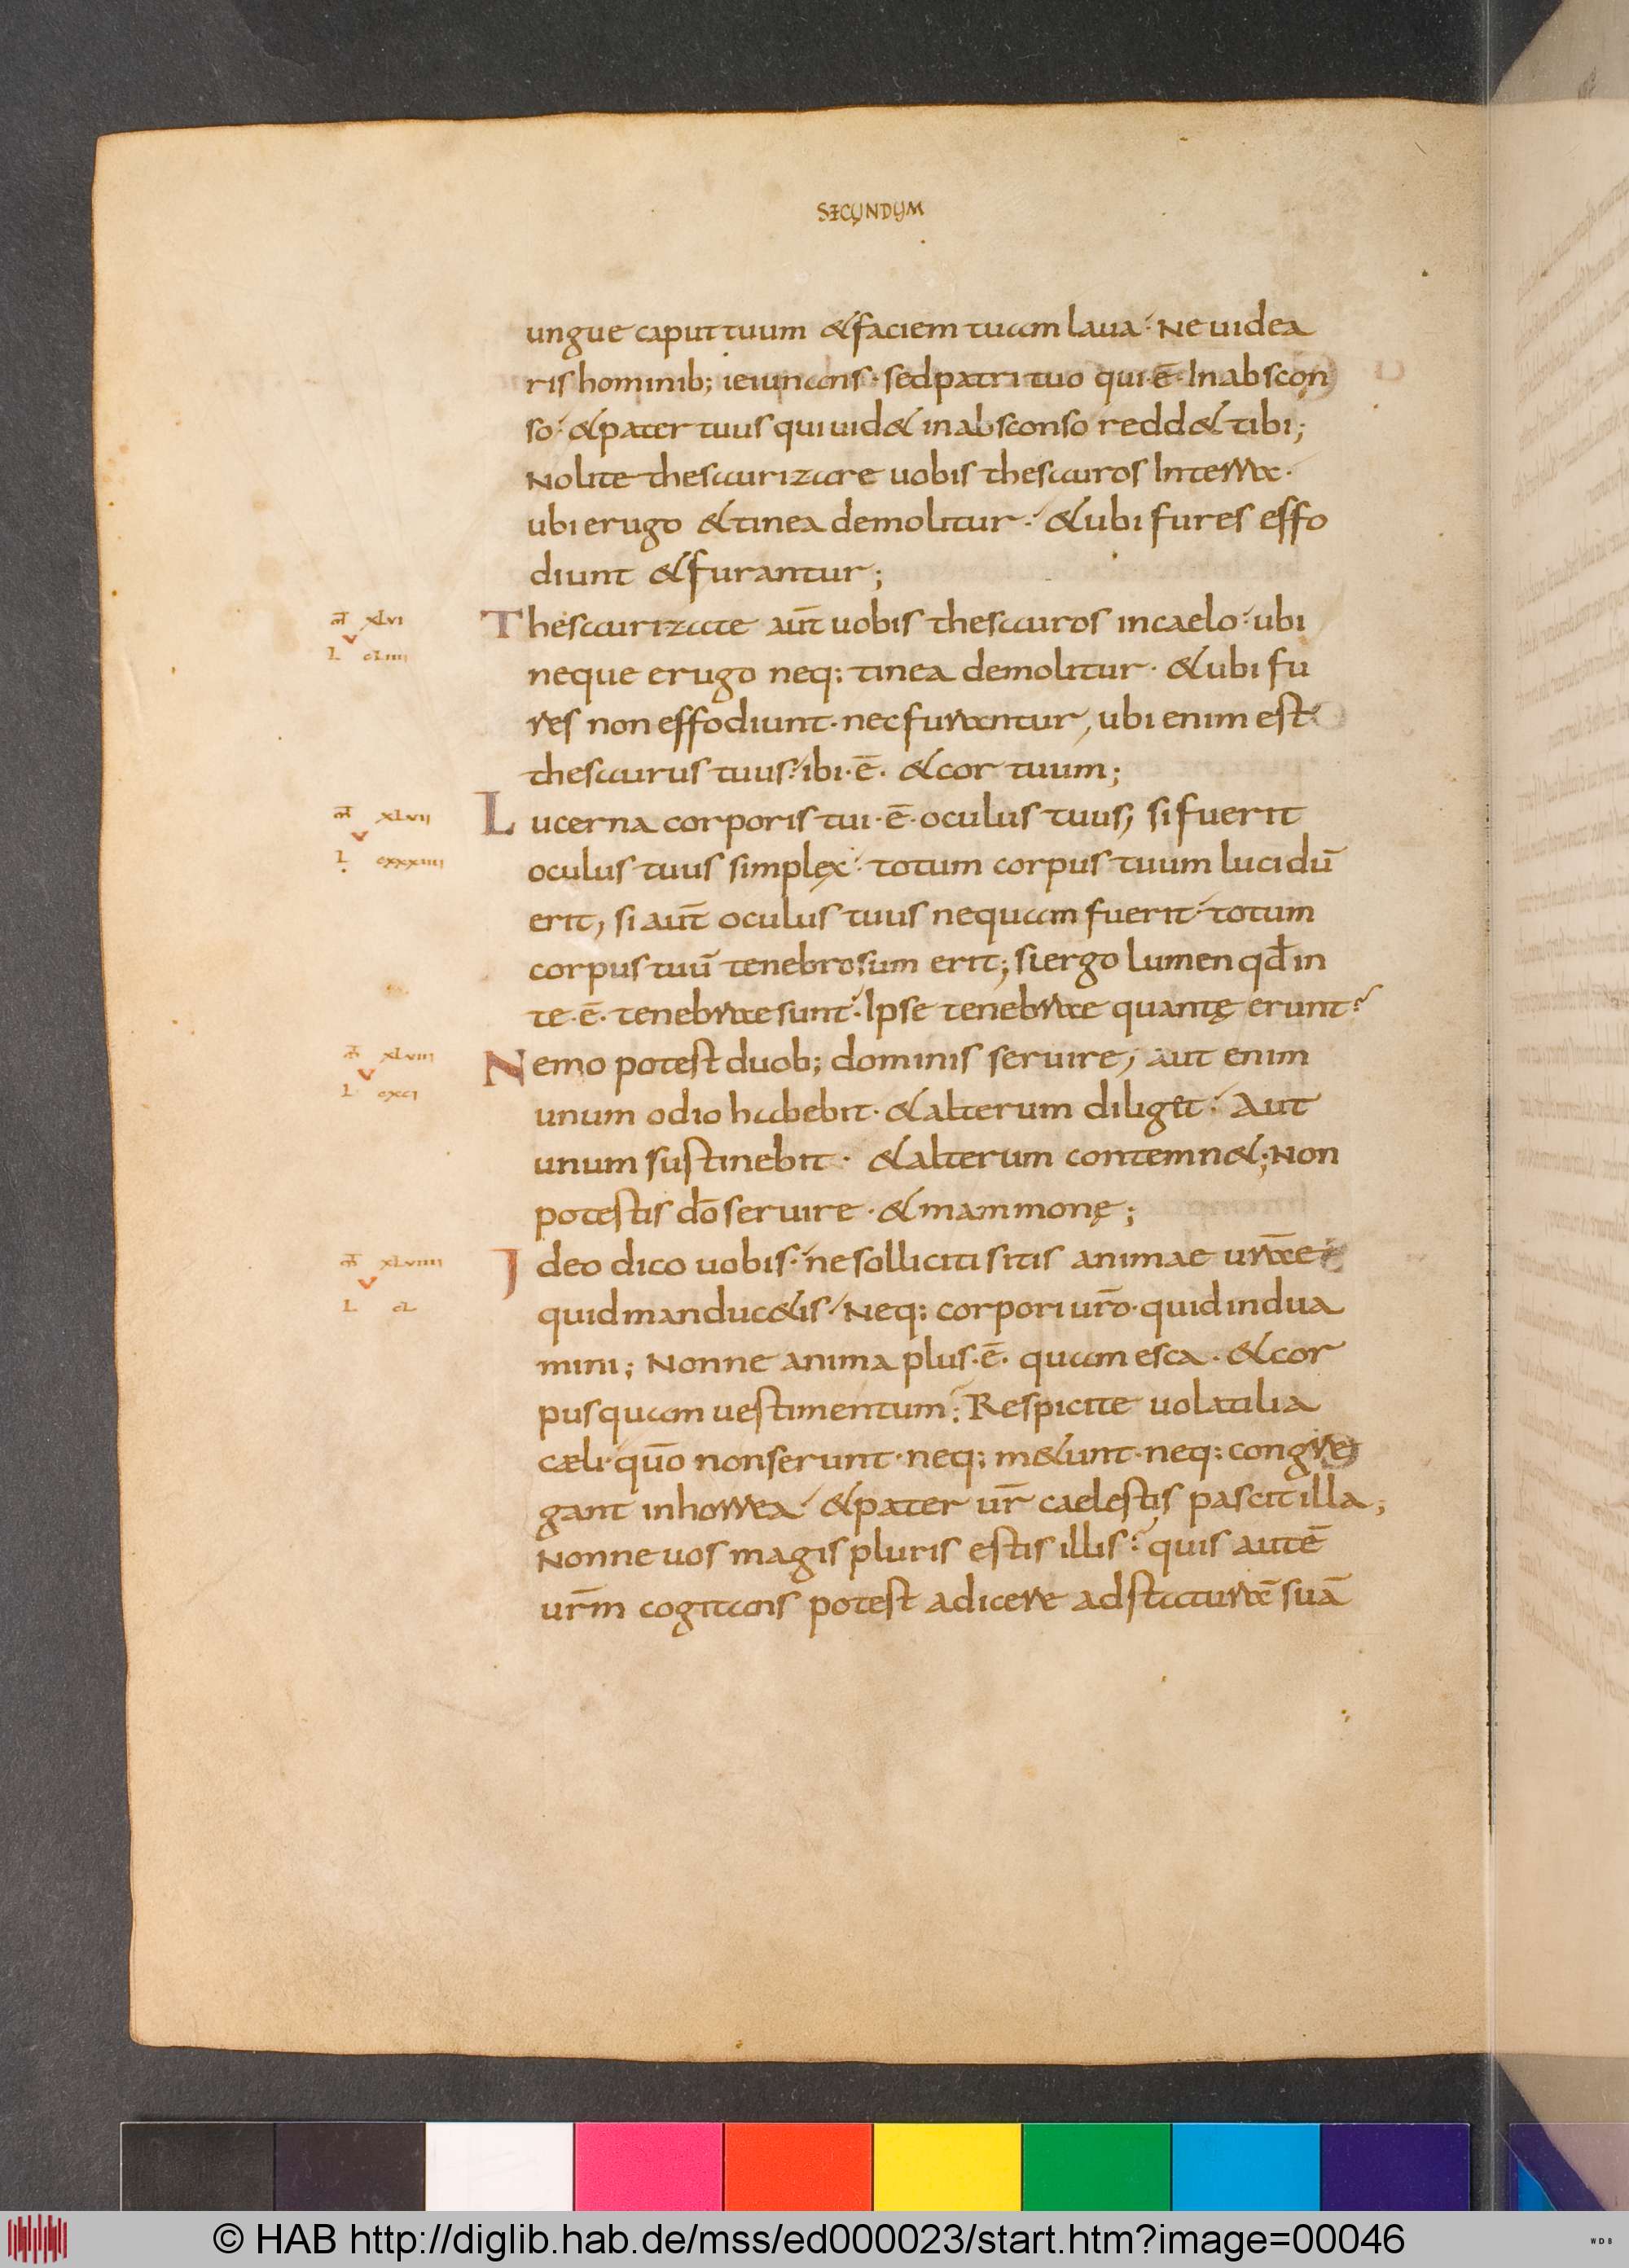 SECUNDUM
ungue caput tuum & faciem tuam laua· Ne uidea
ris hominib; ieiunans· sed patri tuo qui·ē· In abscon
so· & pater tuus qui uid& in absconso redd& tibi;
Nolite thesaurizare uobis thesauros In terra·
ubi erugo & tinea demolitur· & ubi fures effo
diunt & furantur;
m̄ xlvi
Thesaurizate aut̄ uobis thesauros in caelo· ubi
L cliiii
neque erugo neq: tinea demolitur· & ubi fu
res non effodiunt· nec furantur, ubi enim est
thesaurus tuus· ibi·ē· & cor tuum;
m̄ xlvii
Lucerna corporis tui·ē· oculus tuus; si fuerit
L cxxxiiii
oculus tuus simplex· totum corpus tuum lucidū
erit, si aut̄ oculus tuus nequam fuerit· totum
corpus tuū tenebrosum erit; si ergo lumen qd̄ in
te·ē· tenebrae sunt· Ipse tenebrae quantę erunt?
m̄ xlviii
Nemo potest duob; dominis seruire, aut enim
L cxci
unum odio habebit· & alterum diliget· Aut
unum sustinebit· & alterum contemn&; Non
potestis dō seruire· & mammonę;
m̄ xlviiii
Ideo dico uobis· ne solliciti sitis animae ur̄ae
L cl
quid manduc&is· Neq: corpori ur̄o· quid indua
mini; Nonne anima plus·ē· quam esca· & cor
pus quam uestimentum; Respicite uolatilia
cæli· quō non serunt· neq; m&unt· neq: congre
gant in horrea· & pater ur̄ caelestis pascit illa;
Nonne uos magis pluris estis illis? quis autē
ur̄m cogitans potest adicere ad staturā suā